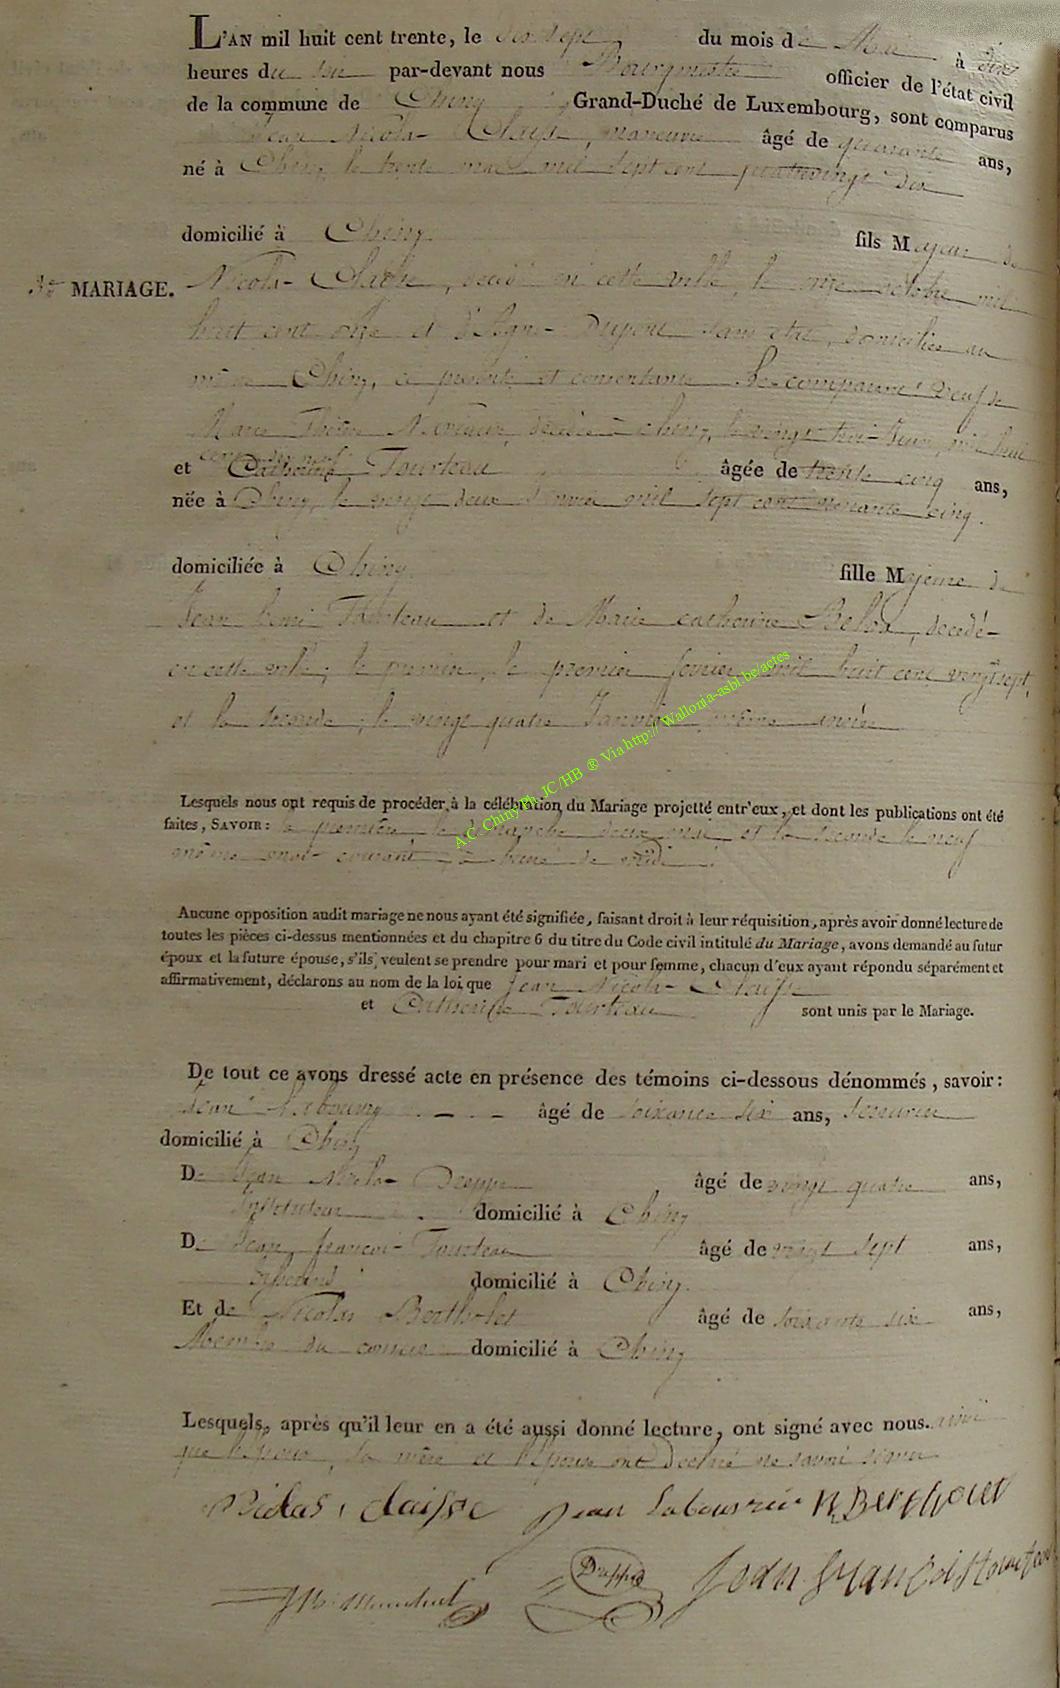 L'AN mil huit cent trente, le dix sept du mois de Mai à six
heures du soir par-devant nous Bourgmestre officier de l'état civil
de la commune de Chiny Grand-Duché de Luxembourg, sont comparus
Jean Nicolas Claisse, manœuvre âgé de quarante ans,
né à Chiny, le trente mil sept cent quatrevingt dix
domicilié à Chiny fils Majeur de
MARIAGE.
Nicolas Claisse, décédé en cette ville, le onze octobre mil
huit cent onze et d' Dupont sans état, domiciliée au
même Chiny, ci présente et consentante. Le comparant veuf de
Marie Thérèse décédée à Chiny, le vingt trois mil huit
cent
et Catherine Tourteau âgée de trente cinq ans,
née à Chiny, le vingt deux Janvier mil sept cent nonante cinq.
domiciliée à Chiny fille Majeure de
Jean Tourteau et de Marie catherine décédés
en cette ville, le premier, le premier février mil huit cent vingt sept,
et la seconde, le vingt quatre Janvier même année
Lesquels nous ont requis de procéder à la célébration du Mariage projetté entr'eux, et dont les publications ont été
faites, SAVOIR: la première le dimanche deux mai et la seconde le neuf
même mois courant, à heure de midi.
Aucune opposition audit mariage ne nous ayant été signifiée, faisant droit à leur réquisition, après avoir donné lecture de
toutes les pièces ci-dessus mentionnées et du chapitre 6 du titre du Code civil intitulé du Mariage, avons demandé au futur
époux et la future épouse, s'ils veulent se prendre pour mari et pour femme, chacun d'eux ayant répondu séparément et
affirmativement, déclarons au nom de la loi, que Jean Nicolas Claisse
et Catherine Tourteau sont unis par le Mariage.
De tout ce avons dressé acte en présence des témoins ci-dessous dénommés, savoir:
Jean âgé de soixante six ans,
domicilié à Chiny
De Jean Nicolas Dreppe âgé de vingt quatre ans,
Instituteur domicilié à Chiny
De Jean François Tourteau âgé de vingt sept ans,
domicilié à Chiny.
Et de Nicolas Bertholet âgé de soixante six ans,
Membre du conseil domicilié à Chiny
Lesquels, après qu'il leur en a été aussi donné lecture, ont signé avec nous. ainsi
que l'époux, la mère et l'épouse ont déclaré ne savoir signer
Nicolas claisse Jean N. Bertholet
Dreppe Jean françois tourteau
A.C. Chiny Ph. JC/HB ® Via http://Wallonia-asbl.be/actes